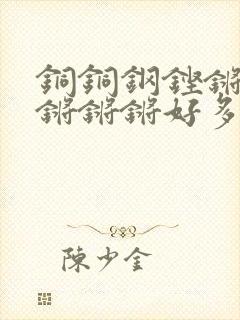 銅銅鋼鏗鏘
鏘鏘鏘好多
陳少金